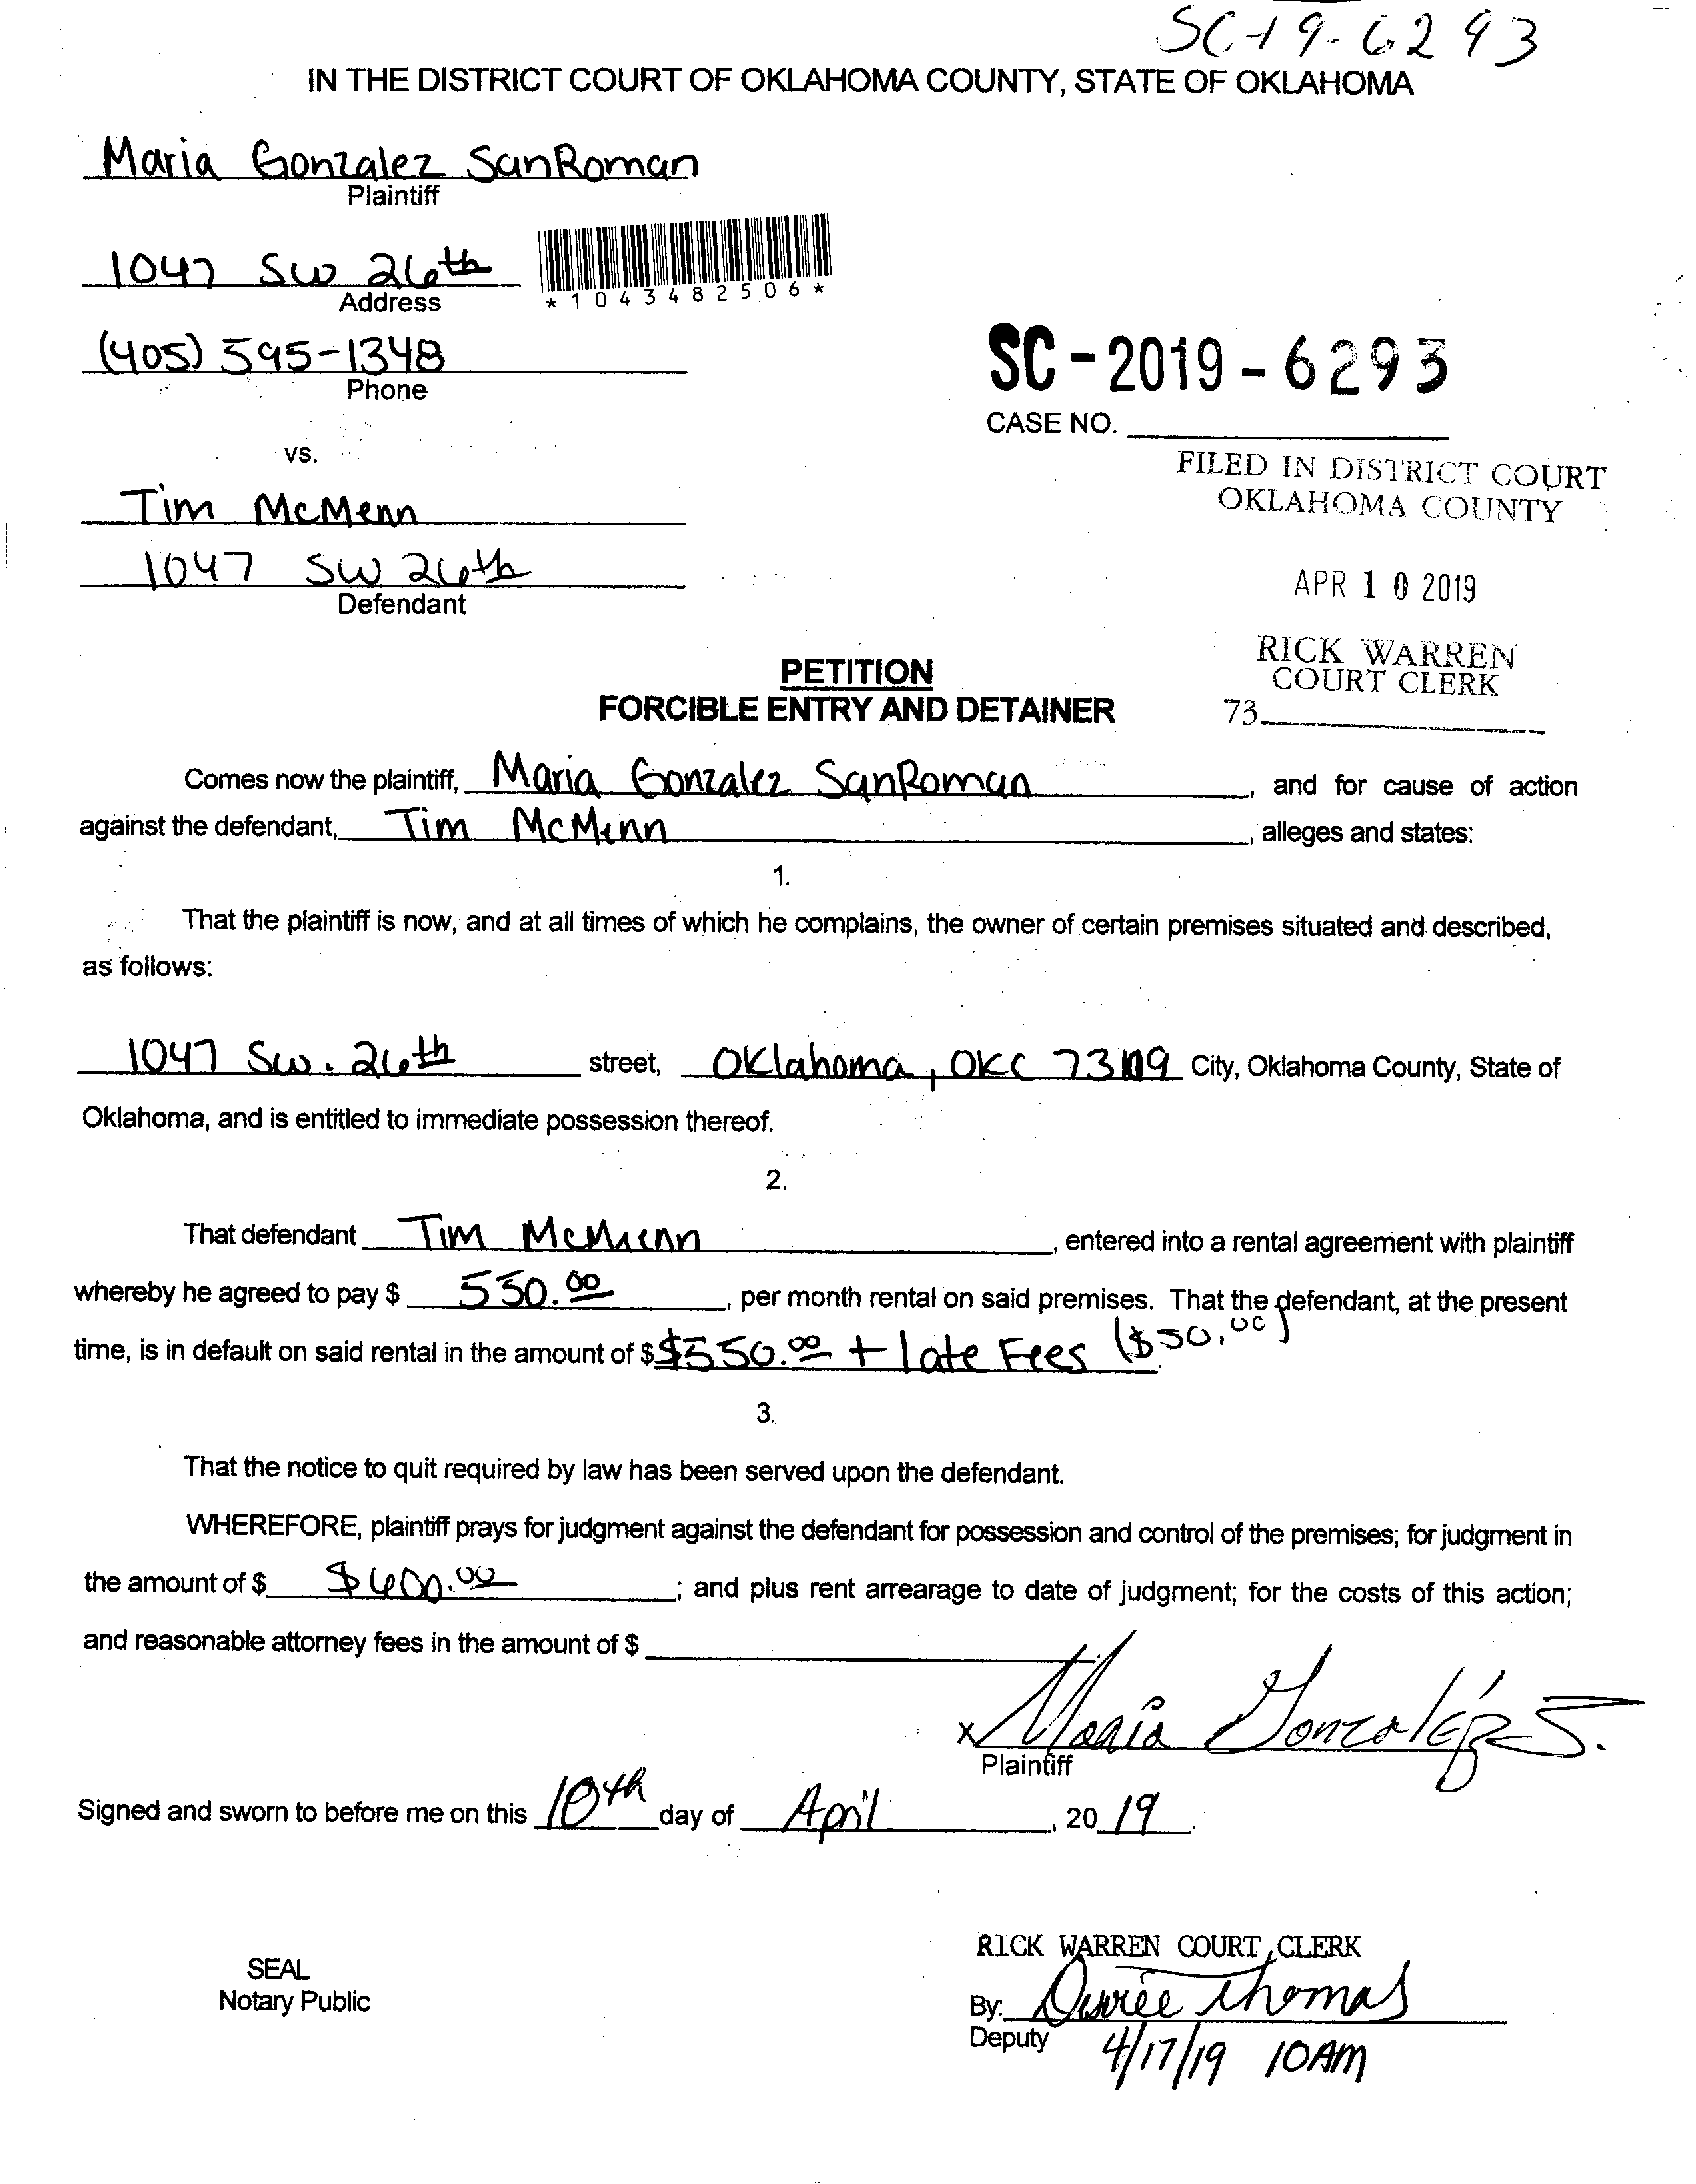 SC-19-6293
IN THE DISTRICT COURT OF OKLAHOMA COUNTY, STATE OF OKLAHOMA
Maria Gonzalez SanRoman
Plaintiff
1047 SW 26th
Address
*1043482506*
(405) 595-1348
Phone
SC-2019-6293
CASE NO.
vs.
FILED IN DISTRICT COURT
OKLAHOMA COUNTY
Tim McMenn
1047 SW 26th
Defendant
APR 10 2019
RICK WARREN
COURT CLERK
73
PETITION
FORCIBLE ENTRY AND DETAINER
Comes now the plaintiff, Maria Gonzalez SanRoman, and for cause of action
against the defendant, Tim McMenn, alleges and states:
1.
That the plaintiff is now, and at all times of which he complains, the owner of certain premises situated and described,
as follows:
1047 SW. 26th street, Oklahoma, OKC 73109 City, Oklahoma County, State of
Oklahoma, and is entitled to immediate possession thereof.
2.
That defendant Tim McMenn, entered into a rental agreement with plaintiff
whereby he agreed to pay $ 550.00, per month rental on said premises. That the defendant, at the present
time, is in default on said rental in the amount of $ $550.00 + late Fees ($50.00).
3.
That the notice to quit required by law has been served upon the defendant.
WHEREFORE, plaintiff prays for judgment against the defendant for possession and control of the premises; for judgment in
the amount of $ $600.00; and plus rent arrearage to date of judgment; for the costs of this action;
and reasonable attorney fees in the amount of $
x Maria González S.
Plaintiff
Signed and sworn to before me on this 10th day of April, 2019.
RICK WARREN COURT CLERK
SEAL
Notary Public
By: Desiree Thomas
Deputy
4/17/19 10AM